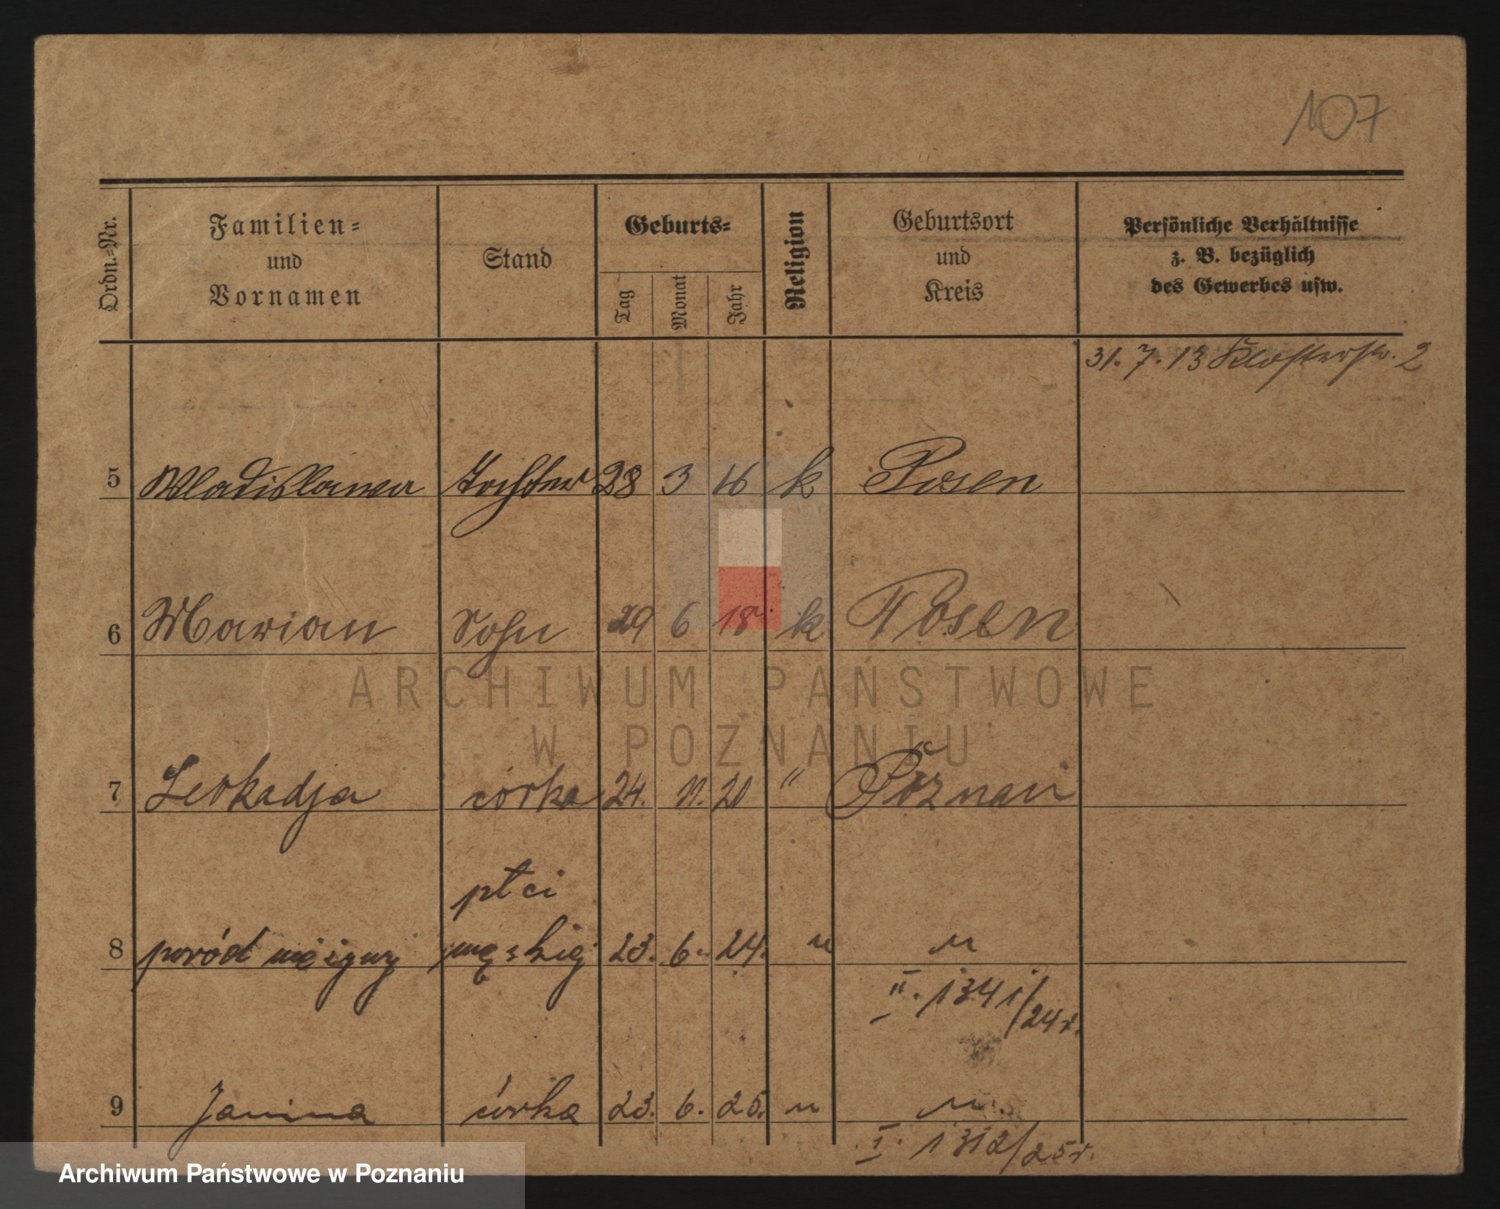 107
Ordn.-Nr.
Familien-
und
Vornamen
Stand
Geburts-
Tag
Monat
Jahr
Religion
Geburtsort
und
Kreis
Persönliche Verhältnisse
z. B. bezüglich
des Gewerbes usw.
31. 7. 13 Klosterstr. 2
5 Wladislawa Tochter 28 3 16 k Posen
6 Marian Sohn 29 6 18 k Posen
ARCHIWUM PAŃSTWOWE
W POZNANIU
7 Leokadja córka 24. 11. 20 " Poznań
płci
8 poród nieżywy męskiej 23. 6. 24. " "
II. 1341/24r.
9 Janina córka 23. 6. 25. " "
I. 1312/25r.
Archiwum Państwowe w Poznaniu